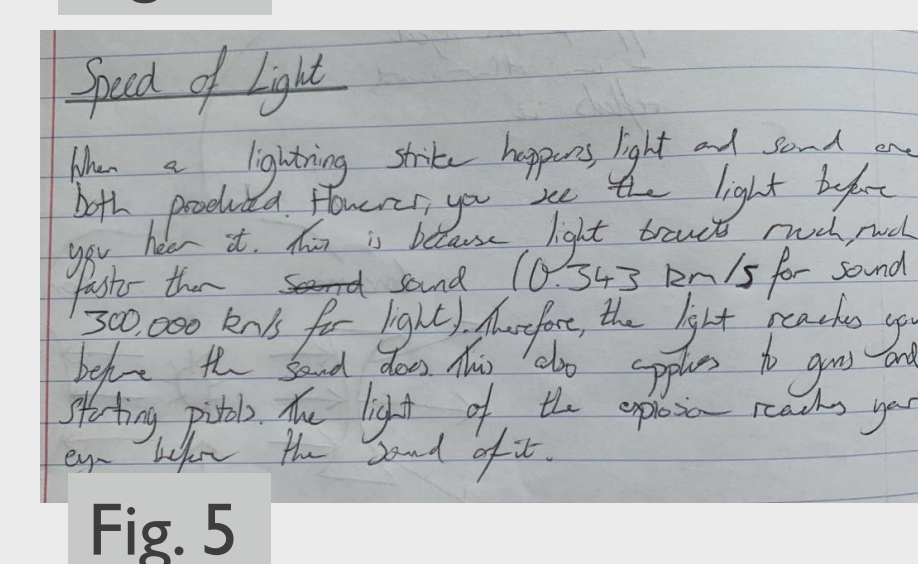 Speed of Light
When a lightning strike happens, light and sound are
both produced. However, you see the light before
you hear it. This is because light travels much, much
faster than sound sound (0.343 km/s for sound
300,000 km/s for light). Therefore, the light reaches you
before the sound does. This also applies to guns and
starting pistols. The light of the explosion reaches your
eye before the sound of it.
Fig. 5